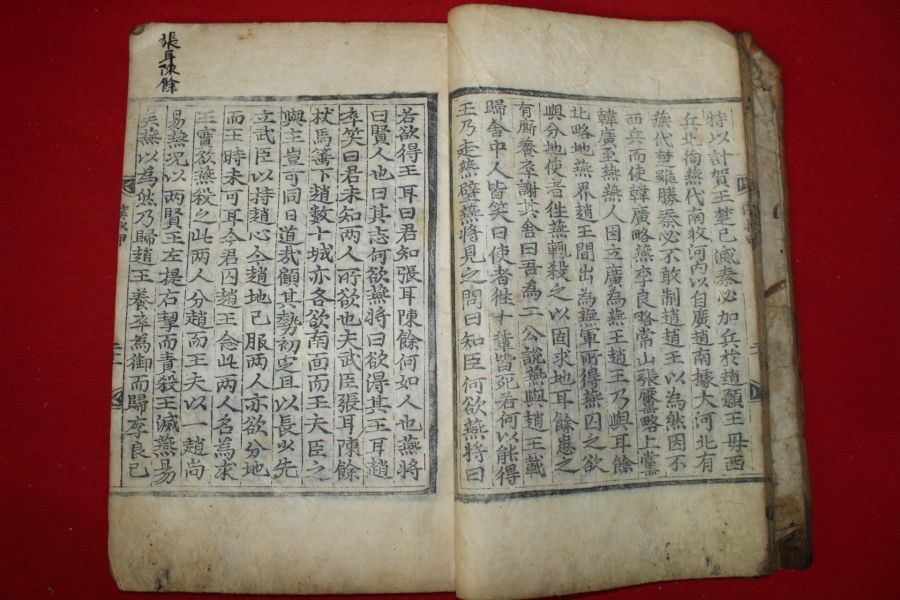 特以計賀王楚已滅秦必加兵於趙願王毋西
兵北徇燕代南收河內以自廣趙南據大河北有
燕代楚雖勝秦必不敢制趙趙王以為然因不
西兵而使韓廣略燕李良略常山張黶略上黨
韓廣至燕燕人因立廣為燕王趙王乃與耳餘
北略地燕界趙王間出為燕軍所得燕囚之欲
與分地使者徃燕輒殺之以固求地耳餘患之
有厮養卒謝其舍曰吾為二公說燕與趙王載
歸舍中人皆笑曰使者徃十輩皆死若何以能得
王乃走燕壁燕將見之問曰知臣何欲燕將曰
張耳陳餘
若欲得王耳曰君知張耳陳餘何如人也燕將
曰賢人也曰其志何欲燕將曰欲得其王耳趙
卒笑曰君未知兩人所欲也夫武臣張耳陳餘
杖馬箠下趙數十城亦各欲南面而王夫臣之
與主豈可同日道哉顧其勢初定且以長少先
立武臣以持趙心今趙地已服兩人亦欲分地
而王時未可耳今君囚趙王念此兩人名為求
王實欲燕殺之此兩人分趙而王夫以一趙尚
易燕況以兩賢王左提右挈而責殺王滅燕易
矣燕以為然乃歸趙王養卒為御而歸李良已